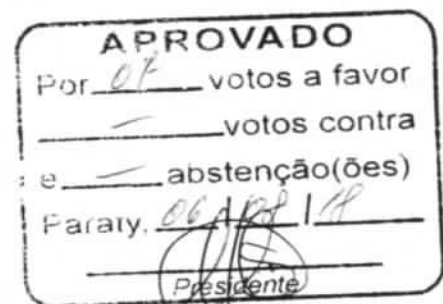 APROVADO
Por 07 votos a favor
— votos contra
e — abstenção(ões)
Paraty, 06 / 08 / 18
Presidente